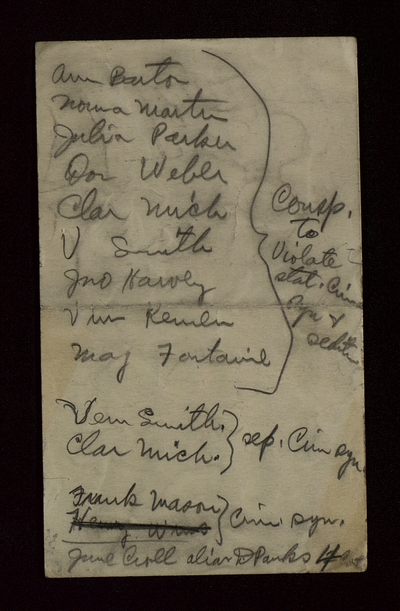 Ann Barton
Norma Martin
Julia Parker
Don Weber
Clar Mich
V Smith
Jno Harvey
Vin
Mag Fontaine
Consp.
to
Violate
stat. Crim
syn &
sedition
Vern Smith.
Clar Mich.
sep. Crim syn
Frank Mason
Henry
Crim syn.
June Croll alias D Parks